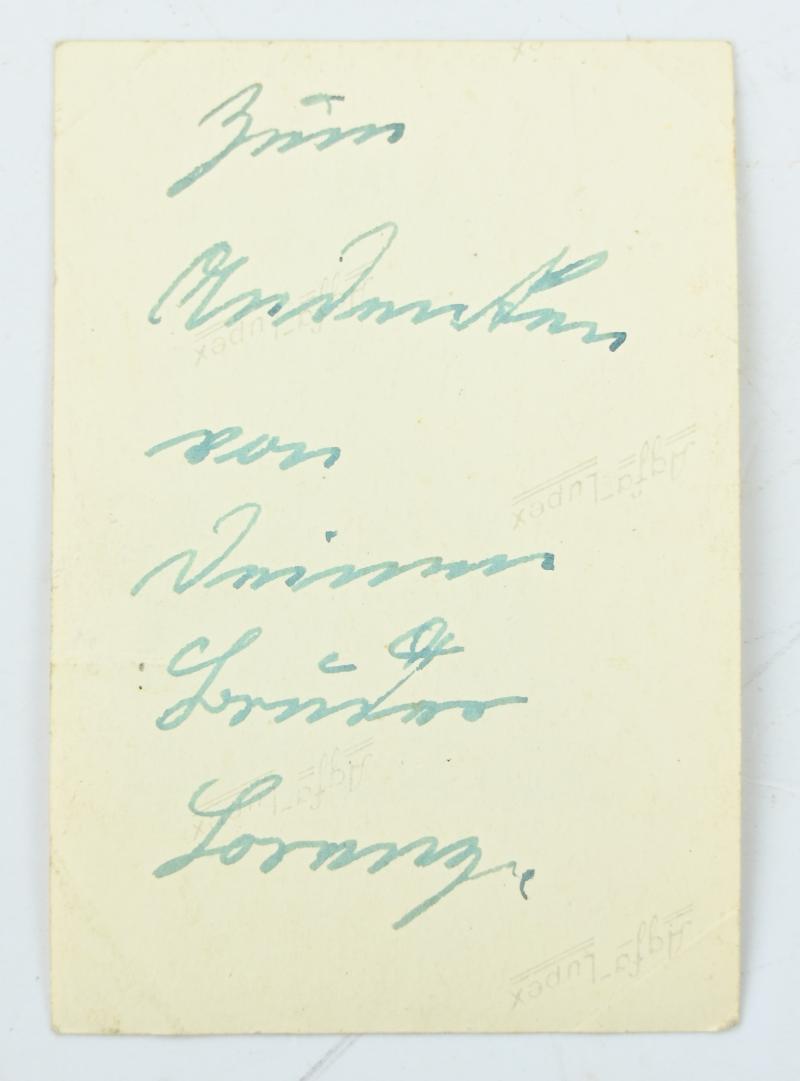 Zum
Andenken
von
Deinem
Bruder
Lorenz.
Agfa-Lupex
Agfa-Lupex
Agfa-Lupex
Agfa-Lupex